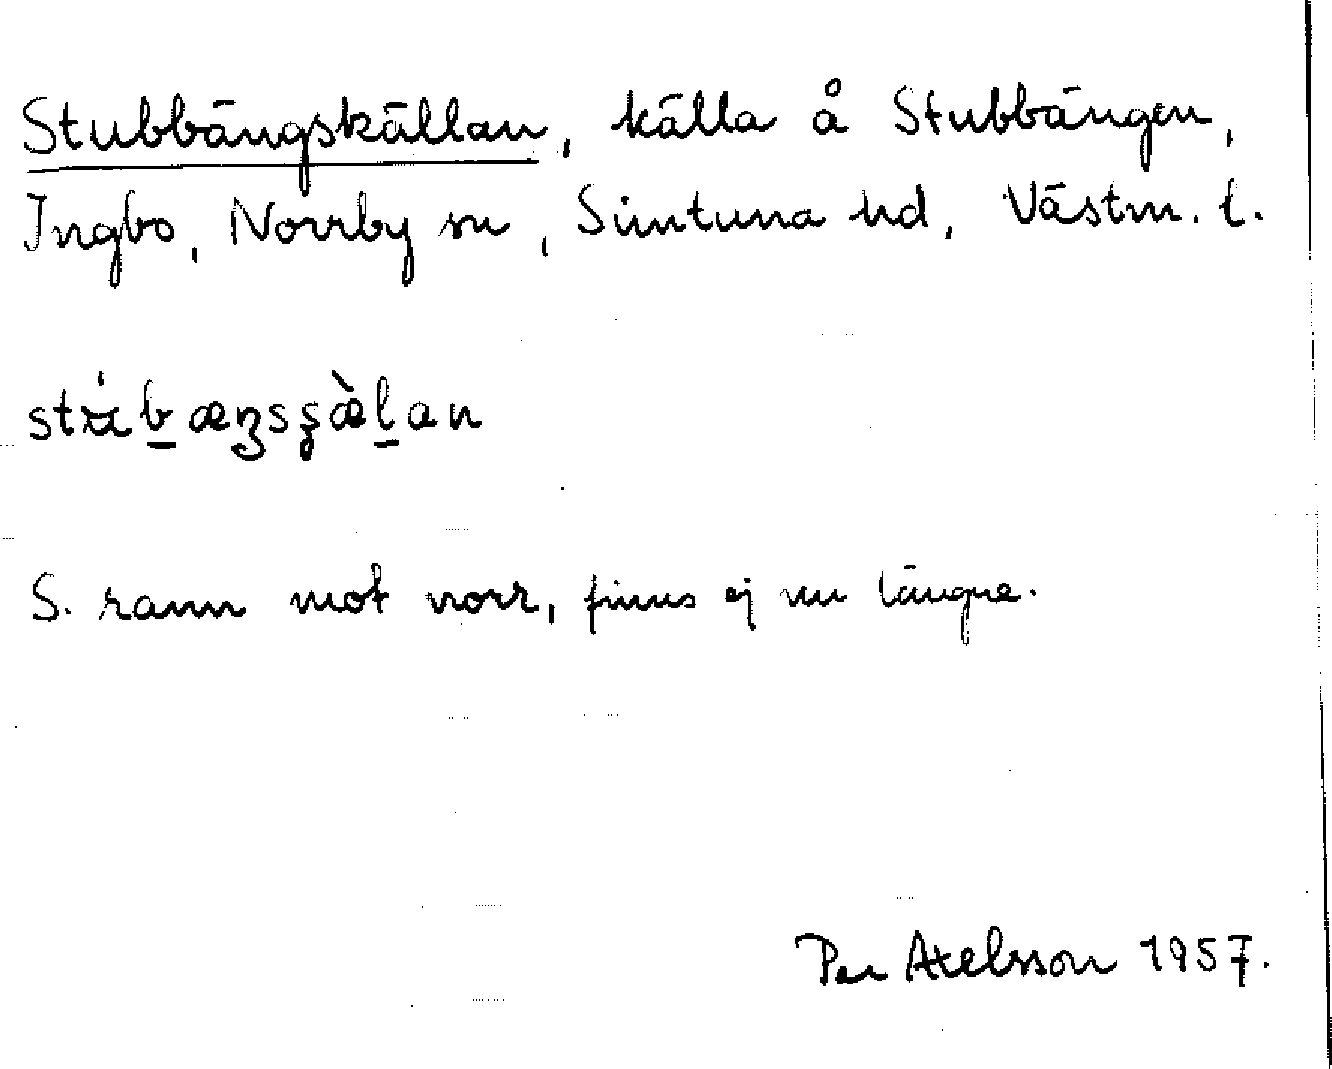 Stubbängskällan, källa å Stubbängen,
Ingbo, Norrby sn, Simtuna hd, Västm. l.
S. rann mot norr, finns ej nu längre.
Per Axelsson 1957.